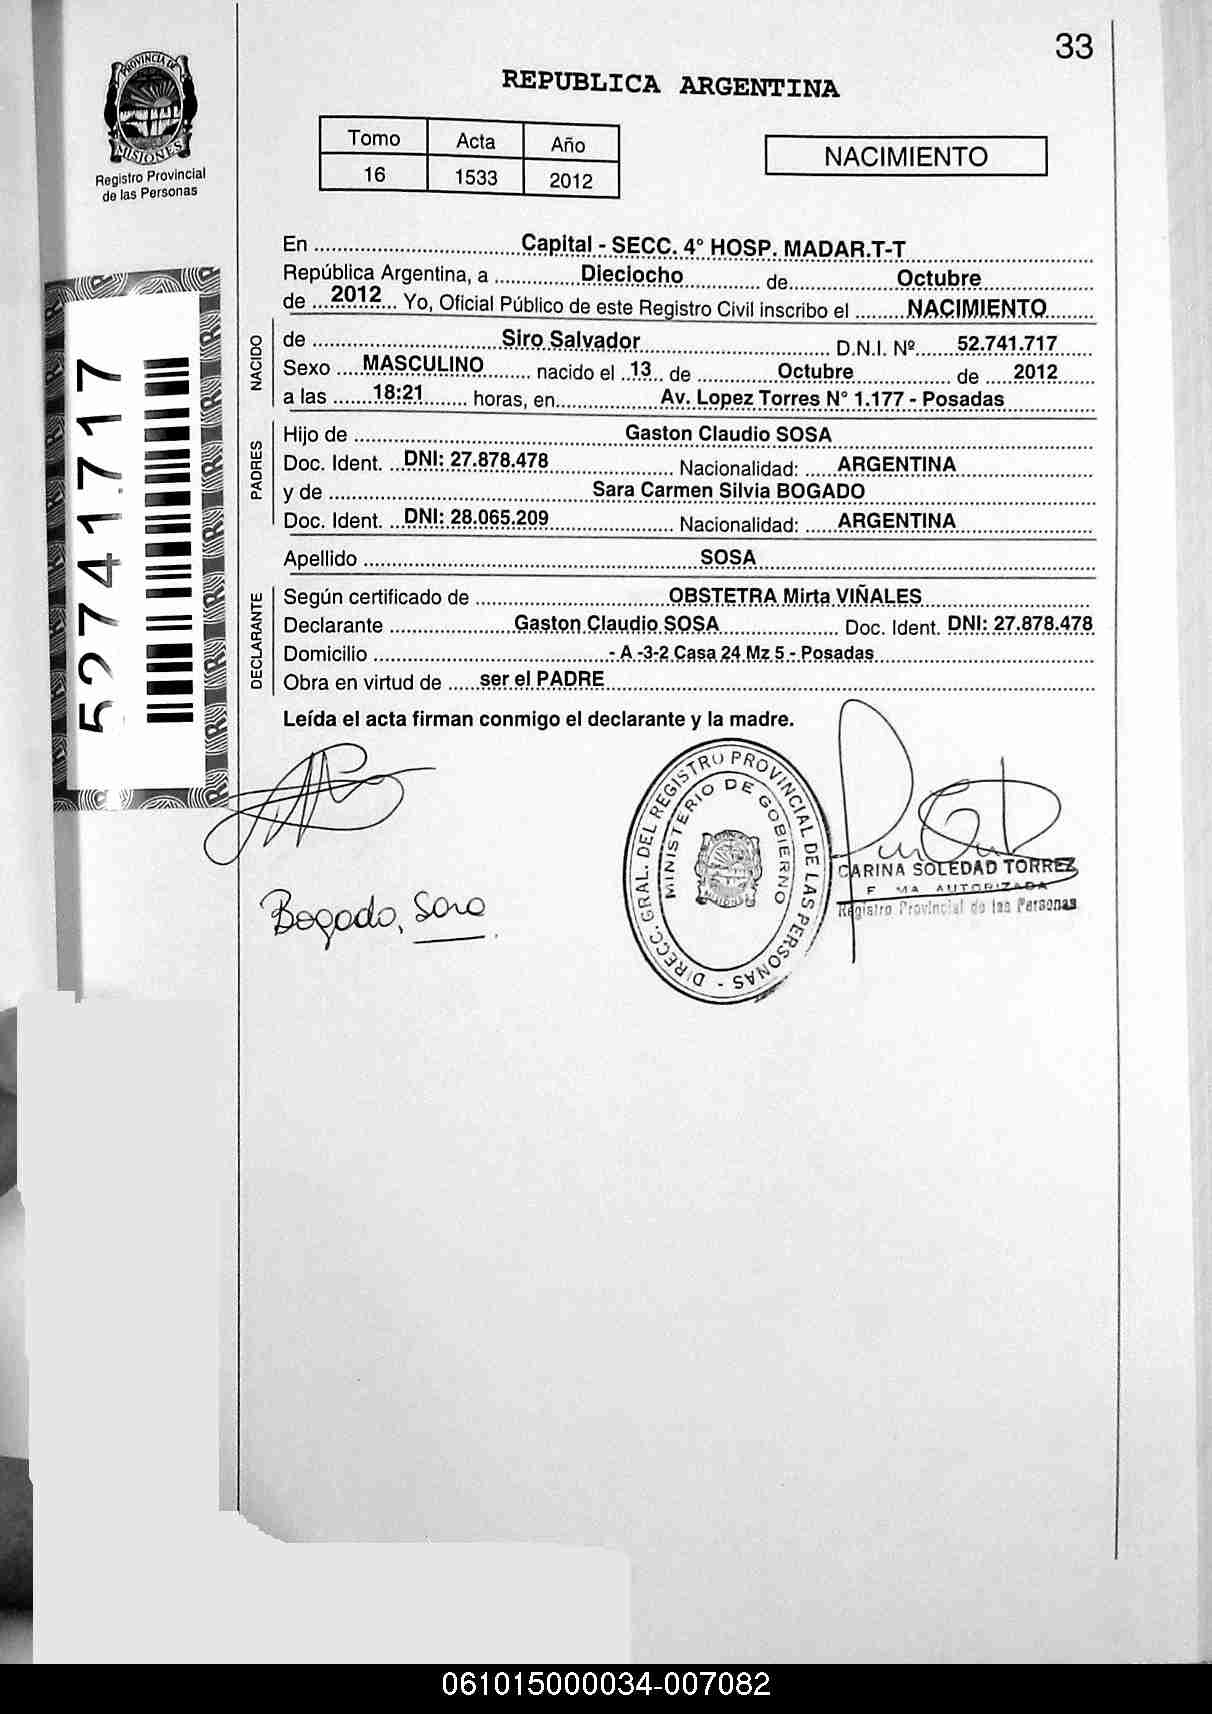 33
PROVINCIA DE
MISIONES
Registro Provincial
de las Personas
REPUBLICA ARGENTINA
Tomo Acta Año
16 1533 2012
NACIMIENTO
En ................ Capital - SECC. 4° HOSP. MADAR.T-T ................
República Argentina, a ................ Dieciocho ................ de ................ Octubre ................
de ... 2012 ... Yo, Oficial Público de este Registro Civil inscribo el ......... NACIMIENTO .........
NACIDO
de ................ Siro Salvador ................ D.N.I. Nº ....... 52.741.717 ......
Sexo .... MASCULINO ........ nacido el .. 13 .. de ................ Octubre ................ de .... 2012 ......
a las ....... 18:21 ....... horas, en ................ Av. Lopez Torres N° 1.177 - Posadas ................
PADRES
Hijo de ................ Gaston Claudio SOSA ................
Doc. Ident. ... DNI: 27.878.478 ................ Nacionalidad: ..... ARGENTINA ................
y de ................ Sara Carmen Silvia BOGADO ................
Doc. Ident. ... DNI: 28.065.209 ................ Nacionalidad: ..... ARGENTINA ................
Apellido ................ SOSA ................
DECLARANTE
Según certificado de ................ OBSTETRA Mirta VIÑALES ................
Declarante ................ Gaston Claudio SOSA ................ Doc. Ident. DNI: 27.878.478
Domicilio ................ - A -3-2 Casa 24 Mz 5 - Posadas ................
Obra en virtud de ...... ser el PADRE ................
Leída el acta firman conmigo el declarante y la madre.
52741717
Bogado, Sara
DIRECC. GRAL. DEL REGISTRO PROVINCIAL DE LAS PERSONAS -
MINISTERIO DE GOBIERNO
CARINA SOLEDAD TORREZ
AUTORIZADA
Registro Provincial de las Personas
061015000034-007082